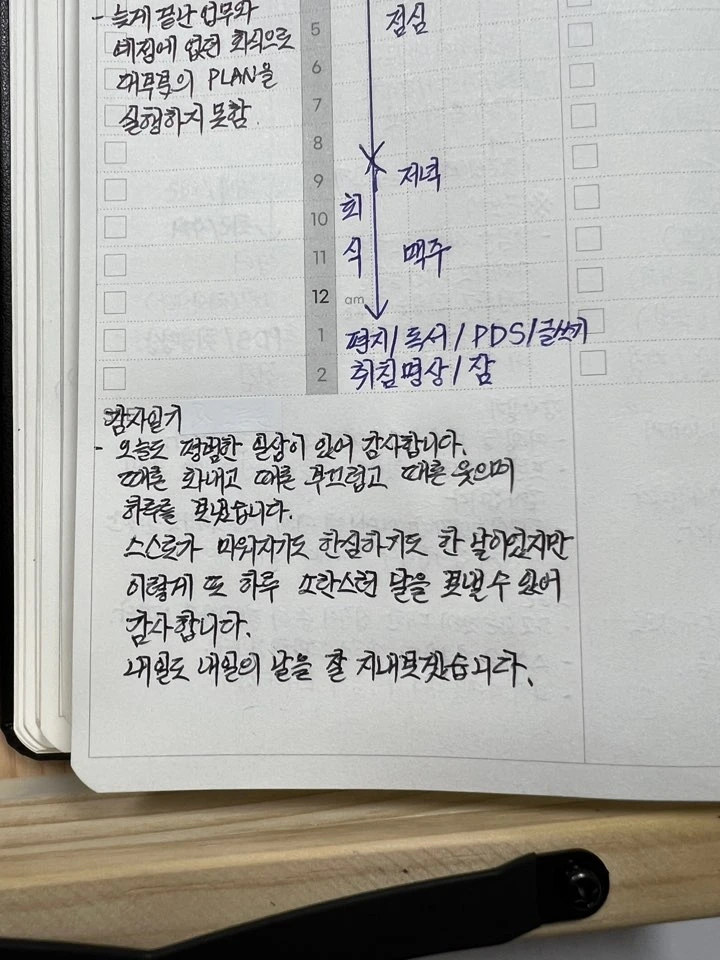 - 늦게 끝난 업무와
예정에 없던 회식으로
대부분의 PLAN을
실행하지 못함.
5
6
7
8
9
10
11
12 am
1
2
점심
저녁
회
식
맥주
편지/독서/PDS/글쓰기
취침명상/잠
감사일기
- 오늘도 평범한 일상이 있어 감사합니다.
때론 화내고 때론 부끄럽고 때론 웃으며
하루를 보냈습니다.
스스로가 미워지기도 한심하기도 한 날이었지만
이렇게 또 하루 소란스런 날을 보낼 수 있어
감사합니다.
내일도 내일의 날을 잘 지내보겠습니다.